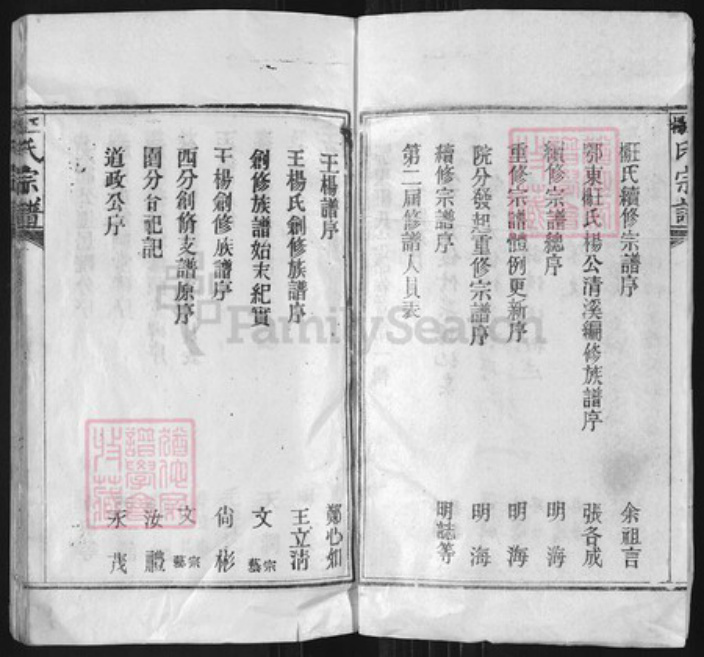 氏宗譜
𣏌氏續修宗譜序 余祖言
鄂東𣏌氏楊公清溪編修族譜序 張各成
續修宗譜總序 明海
重修宗譜體例更新序 明海
院分發起重修宗譜序 明海
續修宗譜序 明誌等
第二屆修譜人員表
王楊譜序 鄭心如
王楊氏創修族譜序 王立清
創修族譜始末紀實 文藝宗
王楊創修族譜序 尚彬
西分創修支譜原序 文藝宗
分祀記 汝禮
道政公序 永茂
氏宗譜
FamilySearch